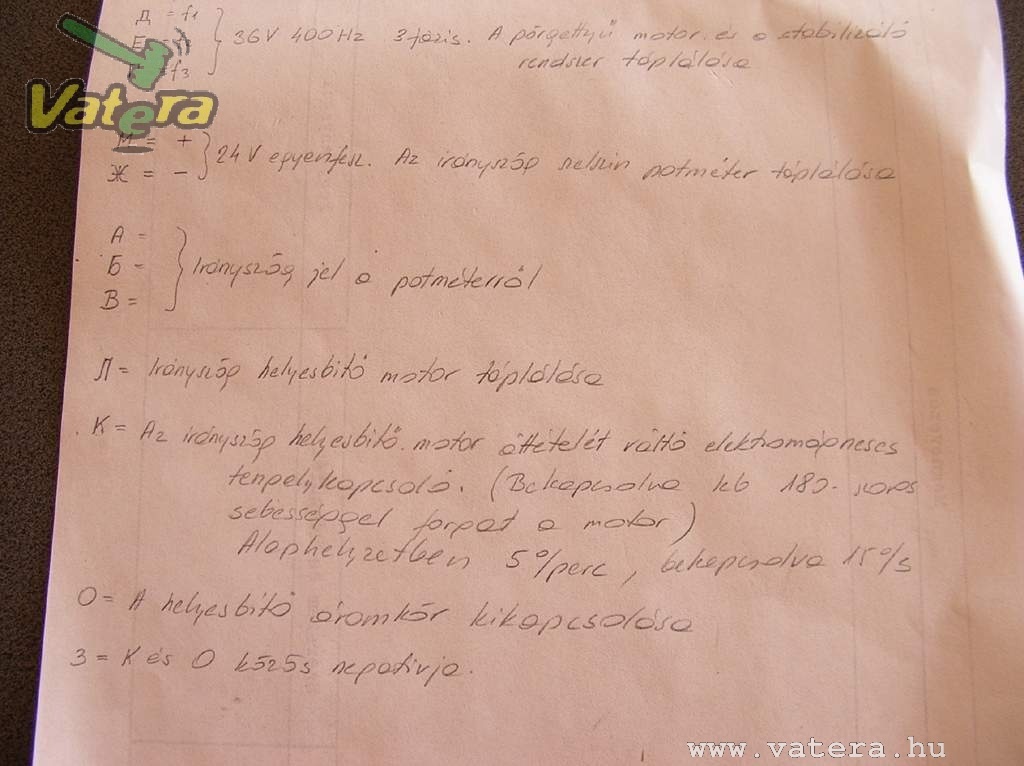 Д = f1
E
f3
36V 400Hz 3 fázis. A pörgettyű motor és a stabilizáló
rendszer táplálása
Vatera
M = +
Ж = -
24V egyenfesz. Az irányszög potméter táplálása
A =
Б =
B =
Irányszög jel a potméterről
Л = Irányszög helyesbítő motor táplálása
K = Az irányszög helyesbítő motor áttételét váltó elektromágneses
tengelykapcsoló. (Bekapcsolva kb 180-szoros
sebességgel forgat a motor)
Alaphelyzetben 5°/perc, bekapcsolva 15°/s
O = A helyesbítő áramkör kikapcsolása
З = K és O közös negatívja.
www.vatera.hu